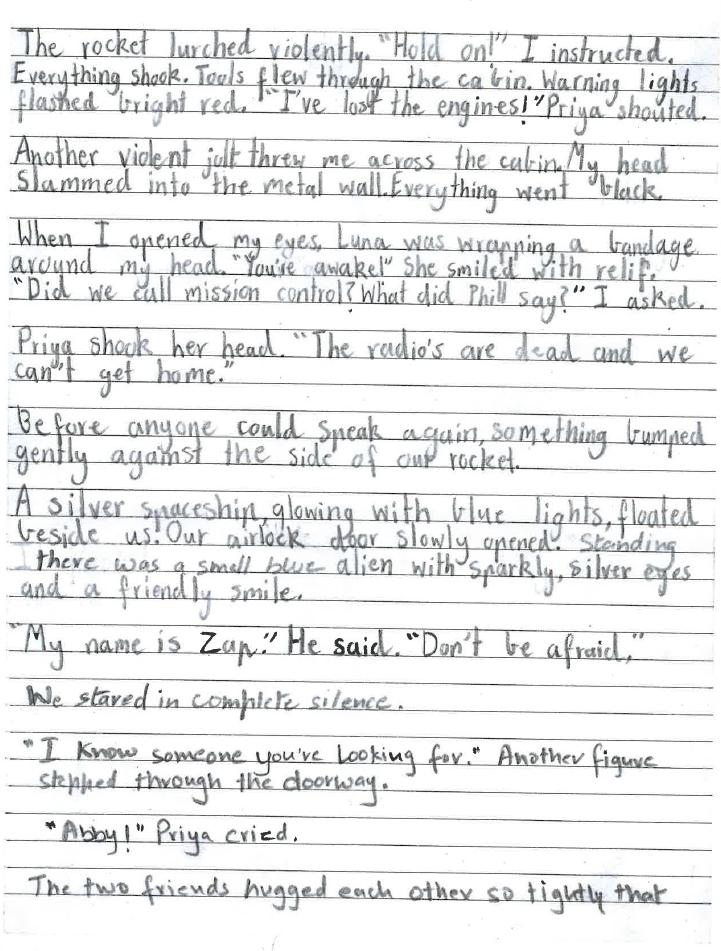 The rocket lurched violently. "Hold on!" I instructed.
Everything shook. Tools flew through the cabin. Warning lights
flashed bright red. "I've lost the engines!" Priya shouted.
Another violent jolt threw me across the cabin. My head
slammed into the metal wall. Everything went black.
When I opened my eyes, Luna was wrapping a bandage
around my head. "You're awake!" She smiled with relif.
"Did we call mission control? What did Phill say?" I asked.
Priya shook her head. "The radio's are dead and we
can't get home."
Before anyone could speak again, something bumped
gently against the side of our rocket.
A silver spaceship, glowing with blue lights, floated
beside us! Our airlock door slowly opened. Standing
there was a small blue alien with sparkly, silver eyes
and a friendly smile.
"My name is Zap." He said. "Don't be afraid."
We stared in complete silence.
"I know someone you're looking for." Another figure
stepped through the doorway.
"Abby!" Priya cried.
The two friends hugged each other so tightly that